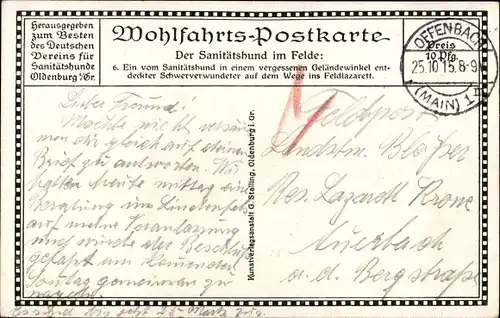 Herausgegeben
zum Besten
des Deutschen
Vereins für
Sanitätshunde
Oldenburg i/Gr.
Wohlfahrts-Postkarte
Der Sanitätshund im Felde:
6. Ein vom Sanitätshund in einem vergessenen Geländewinkel ent-
deckter Schwerverwundeter auf dem Wege ins Feldlazarett.
Preis
10 Pfg.
OFFENBACH
25.10.15. 8-9
(MAIN) 1
Lieber Freund!
Möchte nicht versäu-
men dir gleich auf deinen
Brief zu antworten. Wir
hatten heute mittag eine
auf meine Veranlassung
und wurde der Beschluß
gefaßt am kommenden
Sonntag gemeinsam zu
Es sind bis jetzt 25 Mark
Kunstverlagsanstalt G. Stalling, Oldenburg i. Gr.
Feldpost
Landstm.
Res. Lazarett Krone
Auerbach
a. d. Bergstraße